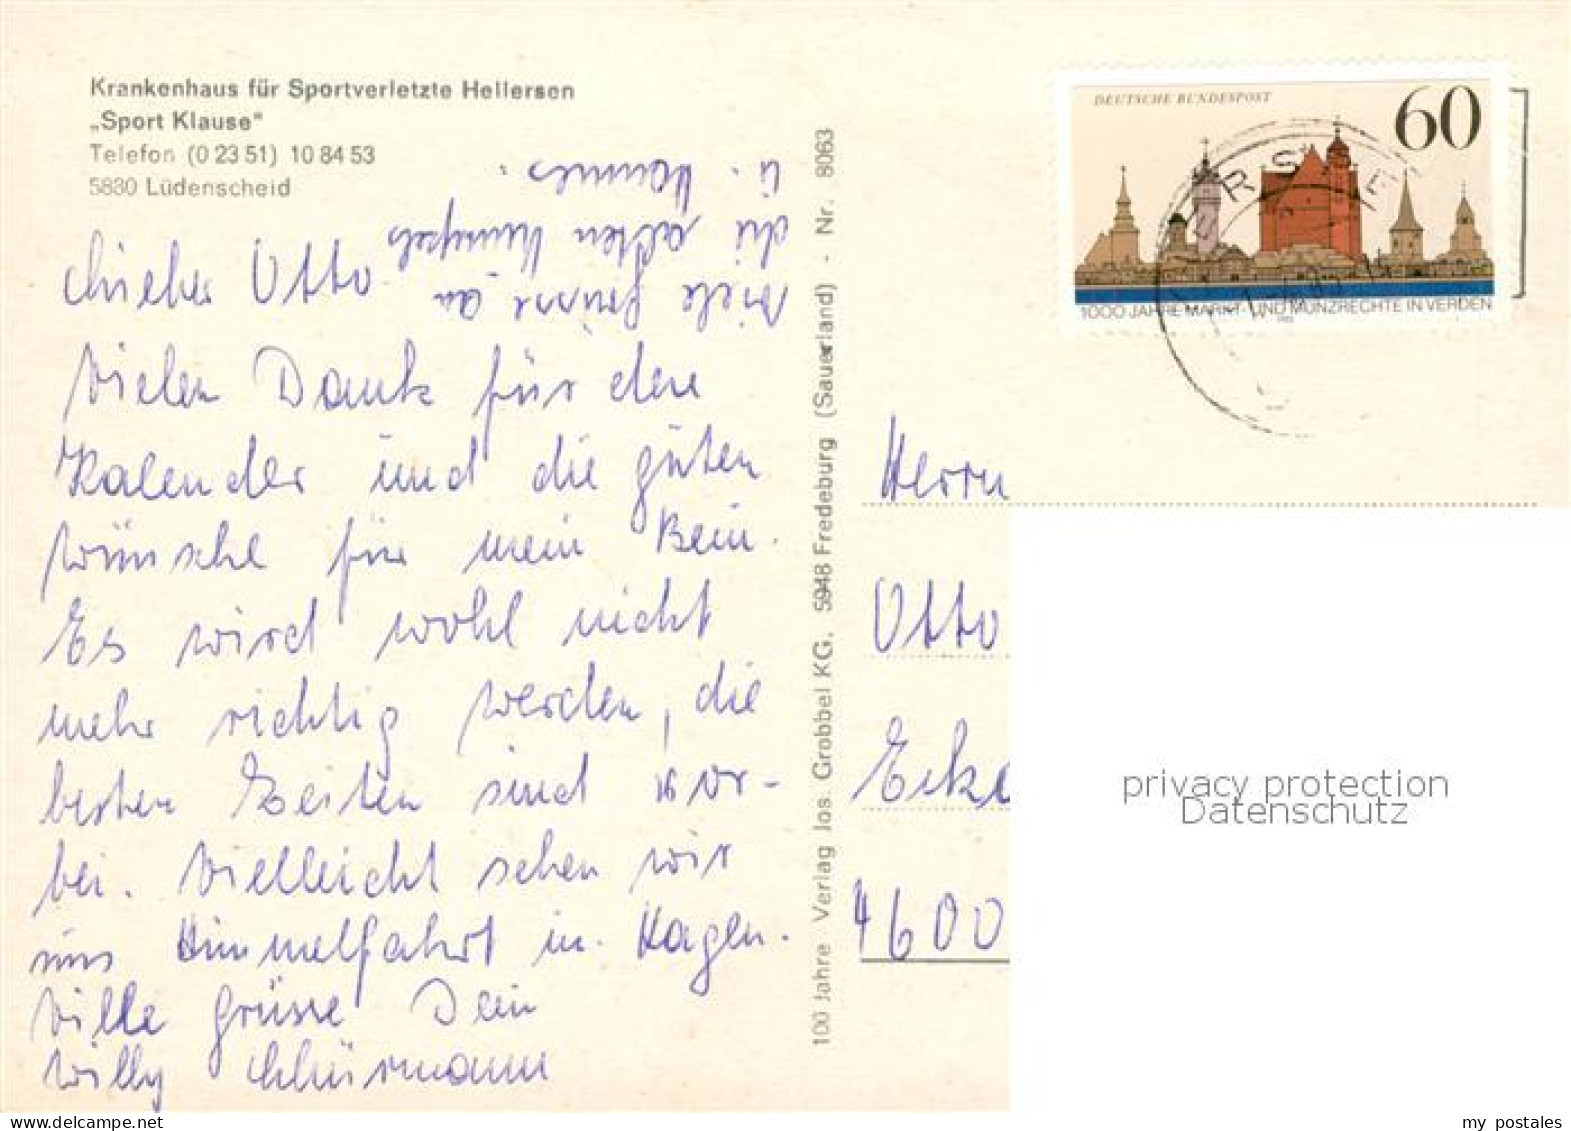 Krankenhaus für Sportverletzte Hellersen
„Sport Klause"
Telefon (0 23 51) 10 84 53
5830 Lüdenscheid
Lieber Otto
Vielen Dank für dere
Kalender und die guten
Wünsche für mein Bein.
Es wird wohl nicht
mehr richtig werden, die
besten Zeiten sind vor-
bei. Vielleicht sehen wir
uns Himmelfahrt in Hagen.
Viele Grüsse Dein
Willy Schürmann
Viele Grüsse an
die alten Kumpels
u. Hannes.
100 Jahre Verlag Jos. Grobbel KG, 5948 Fredeburg (Sauerland) - Nr. 8063
DEUTSCHE BUNDESPOST
60
1000 JAHRE MARKT- UND MÜNZRECHTE IN VERDEN
Herrn
Otto
Ecke
4600
privacy protection
Datenschutz
my postales